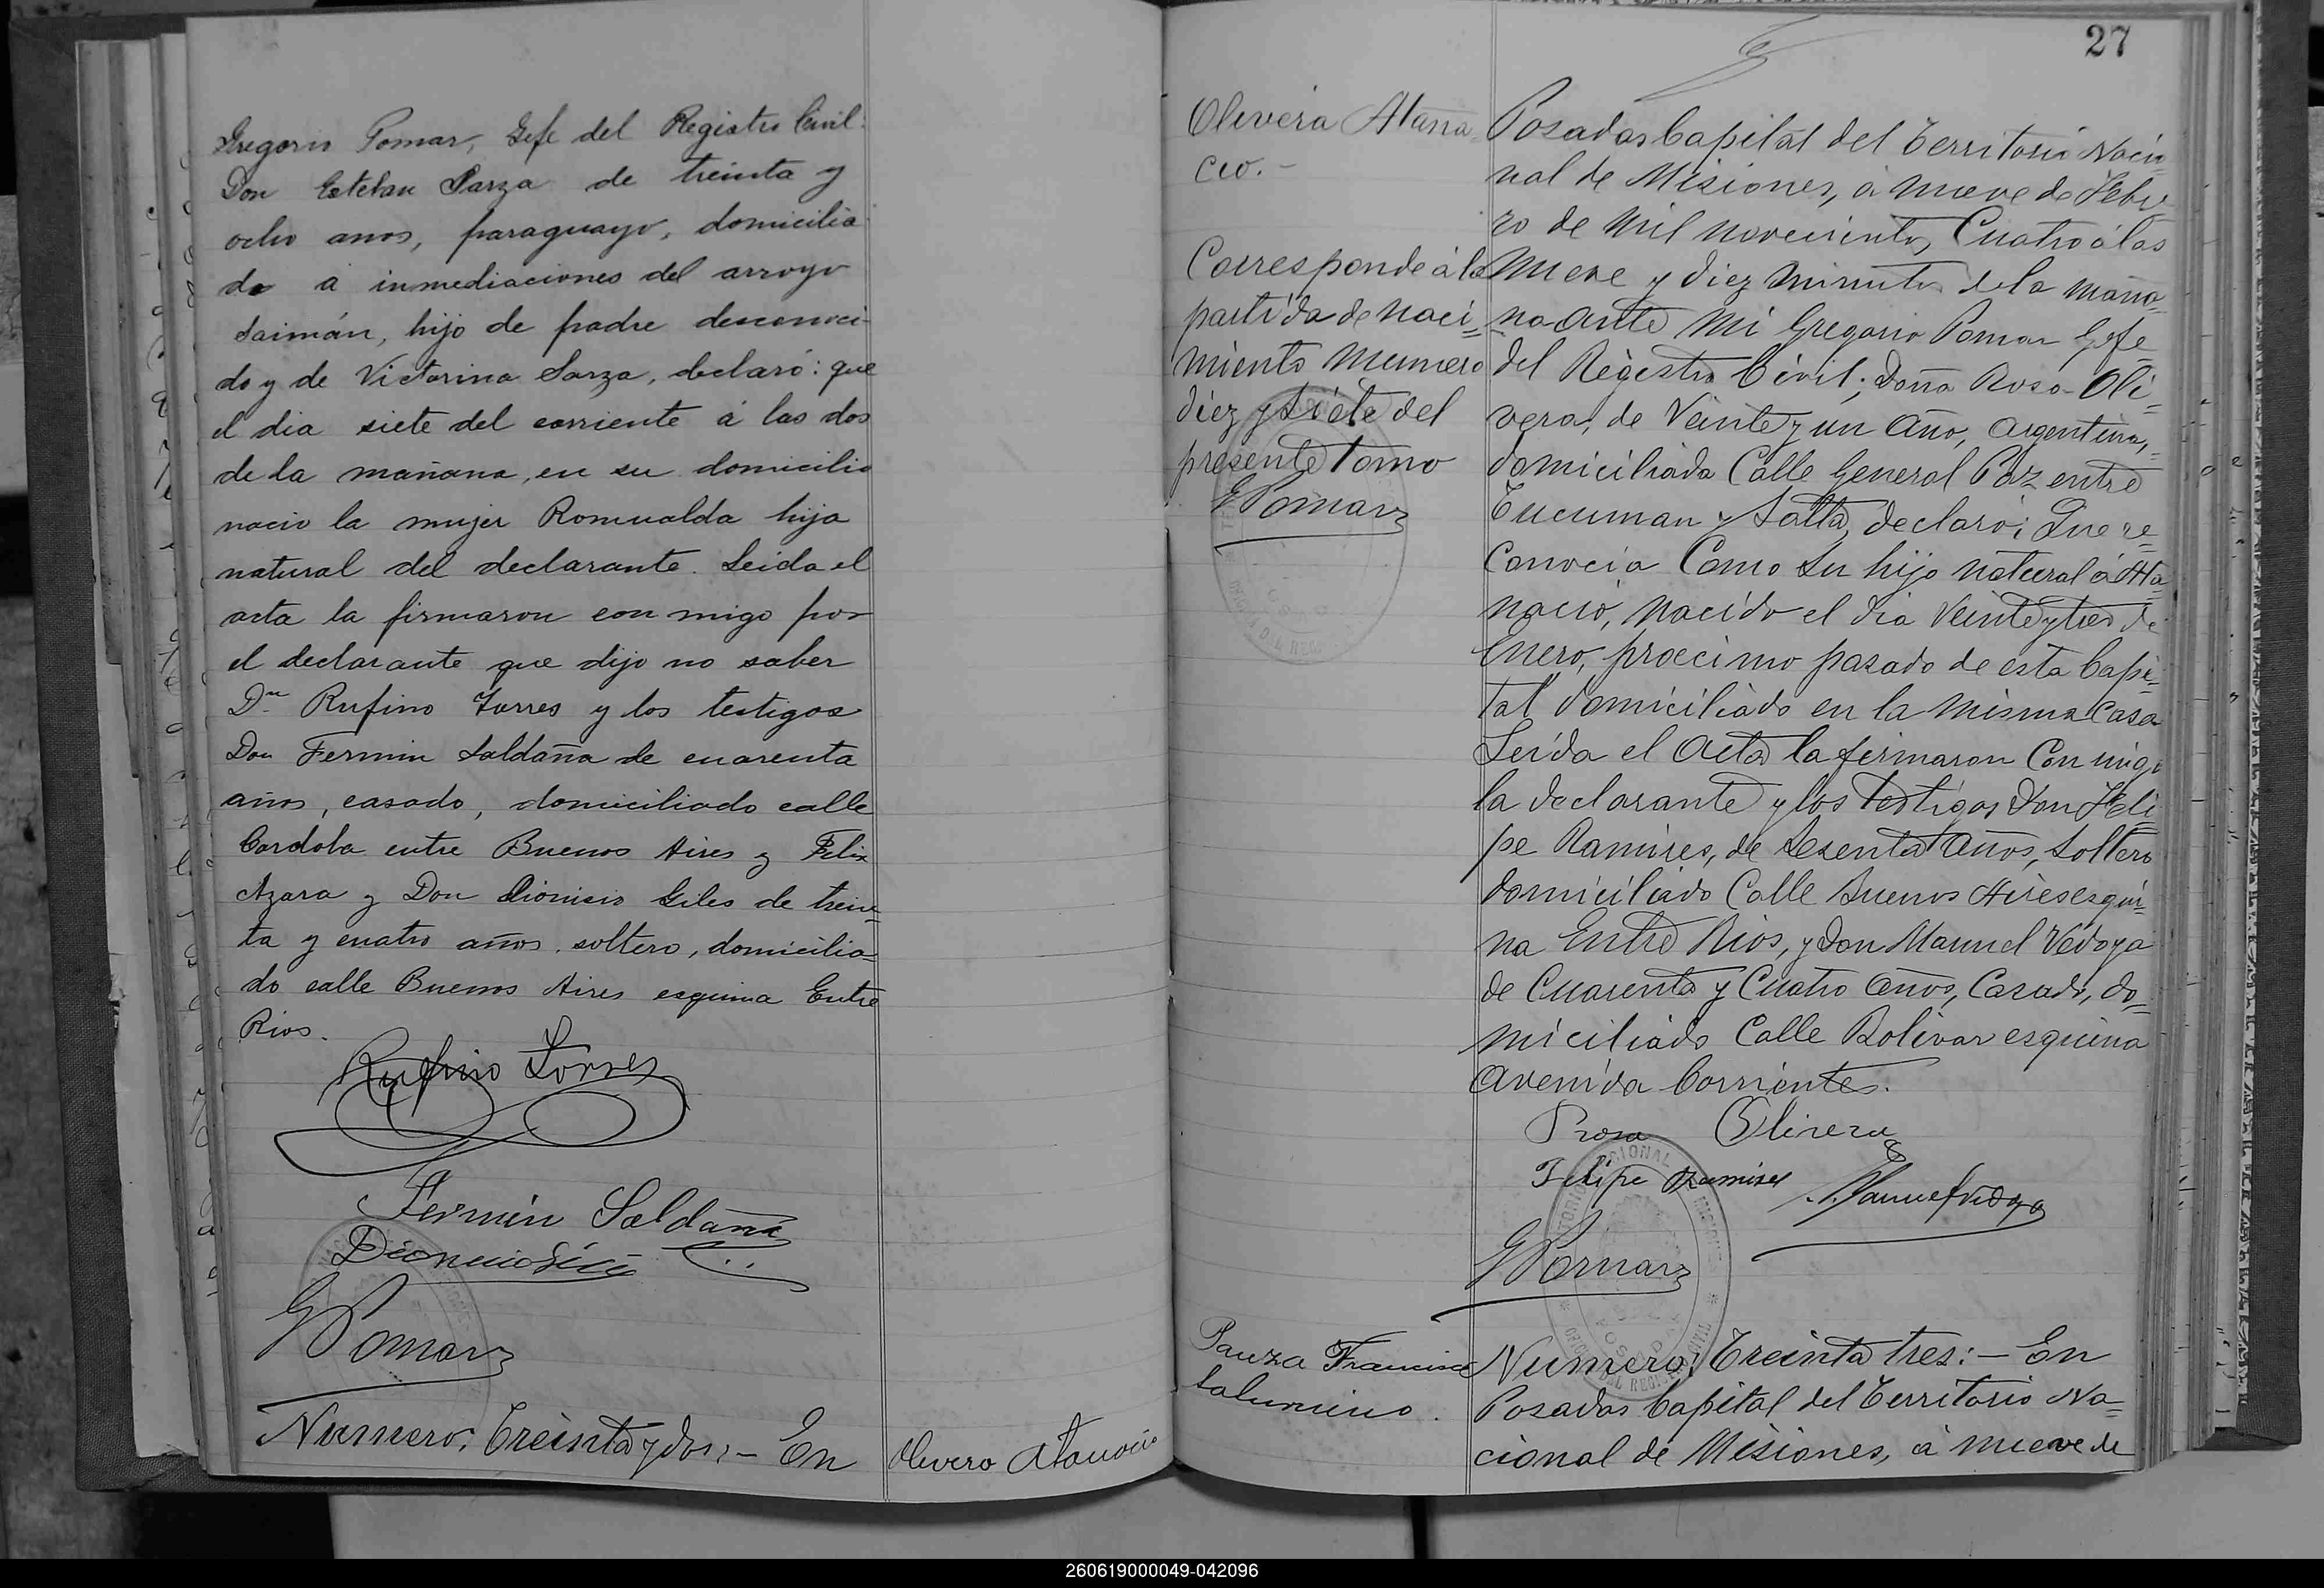 Gregorio Pomar, Gefe del Registro Civil.
Don Esteban Sarza de treinta y
ocho anos, paraguayo, domicilia
do á inmediaciones del arroyo
Saimán, hijo de padre desconoci-
do y de Victorina Sarza, declaró: que
el dia siete del corriente á las dos
de la mañana, en su domicilio
nacio la mujer Romualda hija
natural del declarante. Leida el
acta la firmaron con migo por
el declarante que dijo no saber
Dn Rufino Torres y los testigos
Don Fermin Saldaña de cuarenta
años, casado, domiciliado calle
Cordoba entre Buenos Aires y Felix
Azara y Don Dionisio Giles de trein-
ta y cuatro años soltero, domicilia-
do calle Buenos Aires esquina Entre
Rios.
Rufino Torres
Fermin Saldaña
Dionicio
G Pomar
Numero. Treinta y dos:- En
Olivero Atanacio
27
Olivera Atana-
cio.-
Corresponde á la
partida de naci-
miento numero
diez y siete del
presente tomo
G Pomar
Posadas Capital del Territorio Nacio-
nal de Misiones, á nueve de Febre-
ro de mil novecientos Cuatro á las
nueve y diez minutos de la maña-
na ante mi Gregorio Pomar Gefe
del Registro Civil; Doña Rosa Oli-
vera, de Veinte y un Año, Argentina,
domiciliada Calle General Paz entre
Tucuman y Salta, declaró: Que re-
conocia Como su hijo natural á Ata-
nacio, nacido el dia Veinte y tres de
Enero, procimo pasado de esta Capi-
tal domiciliado en la misma Casa
Leida el Acta la firmaron Con migo
la declarante y los testigos Don Feli-
pe Ramires, de Sesenta Años, Soltero
domiciliado Calle Buenos Aires esqui-
na Entre Rios, y Don Manuel Vedoya
de Cuarenta y Cuatro Años, Casado, do-
miciliado Calle Bolivar esquina
Avenida Corrientes.
Rosa Olivera
Felipe Ramires
Manuel Vedoya
G Pomar
Pauza Francisco
Saturnino.
Numero. Treinta tres:- En
Posadas Capital del Territorio Na-
cional de Misiones, á nueve de
260619000049-042096